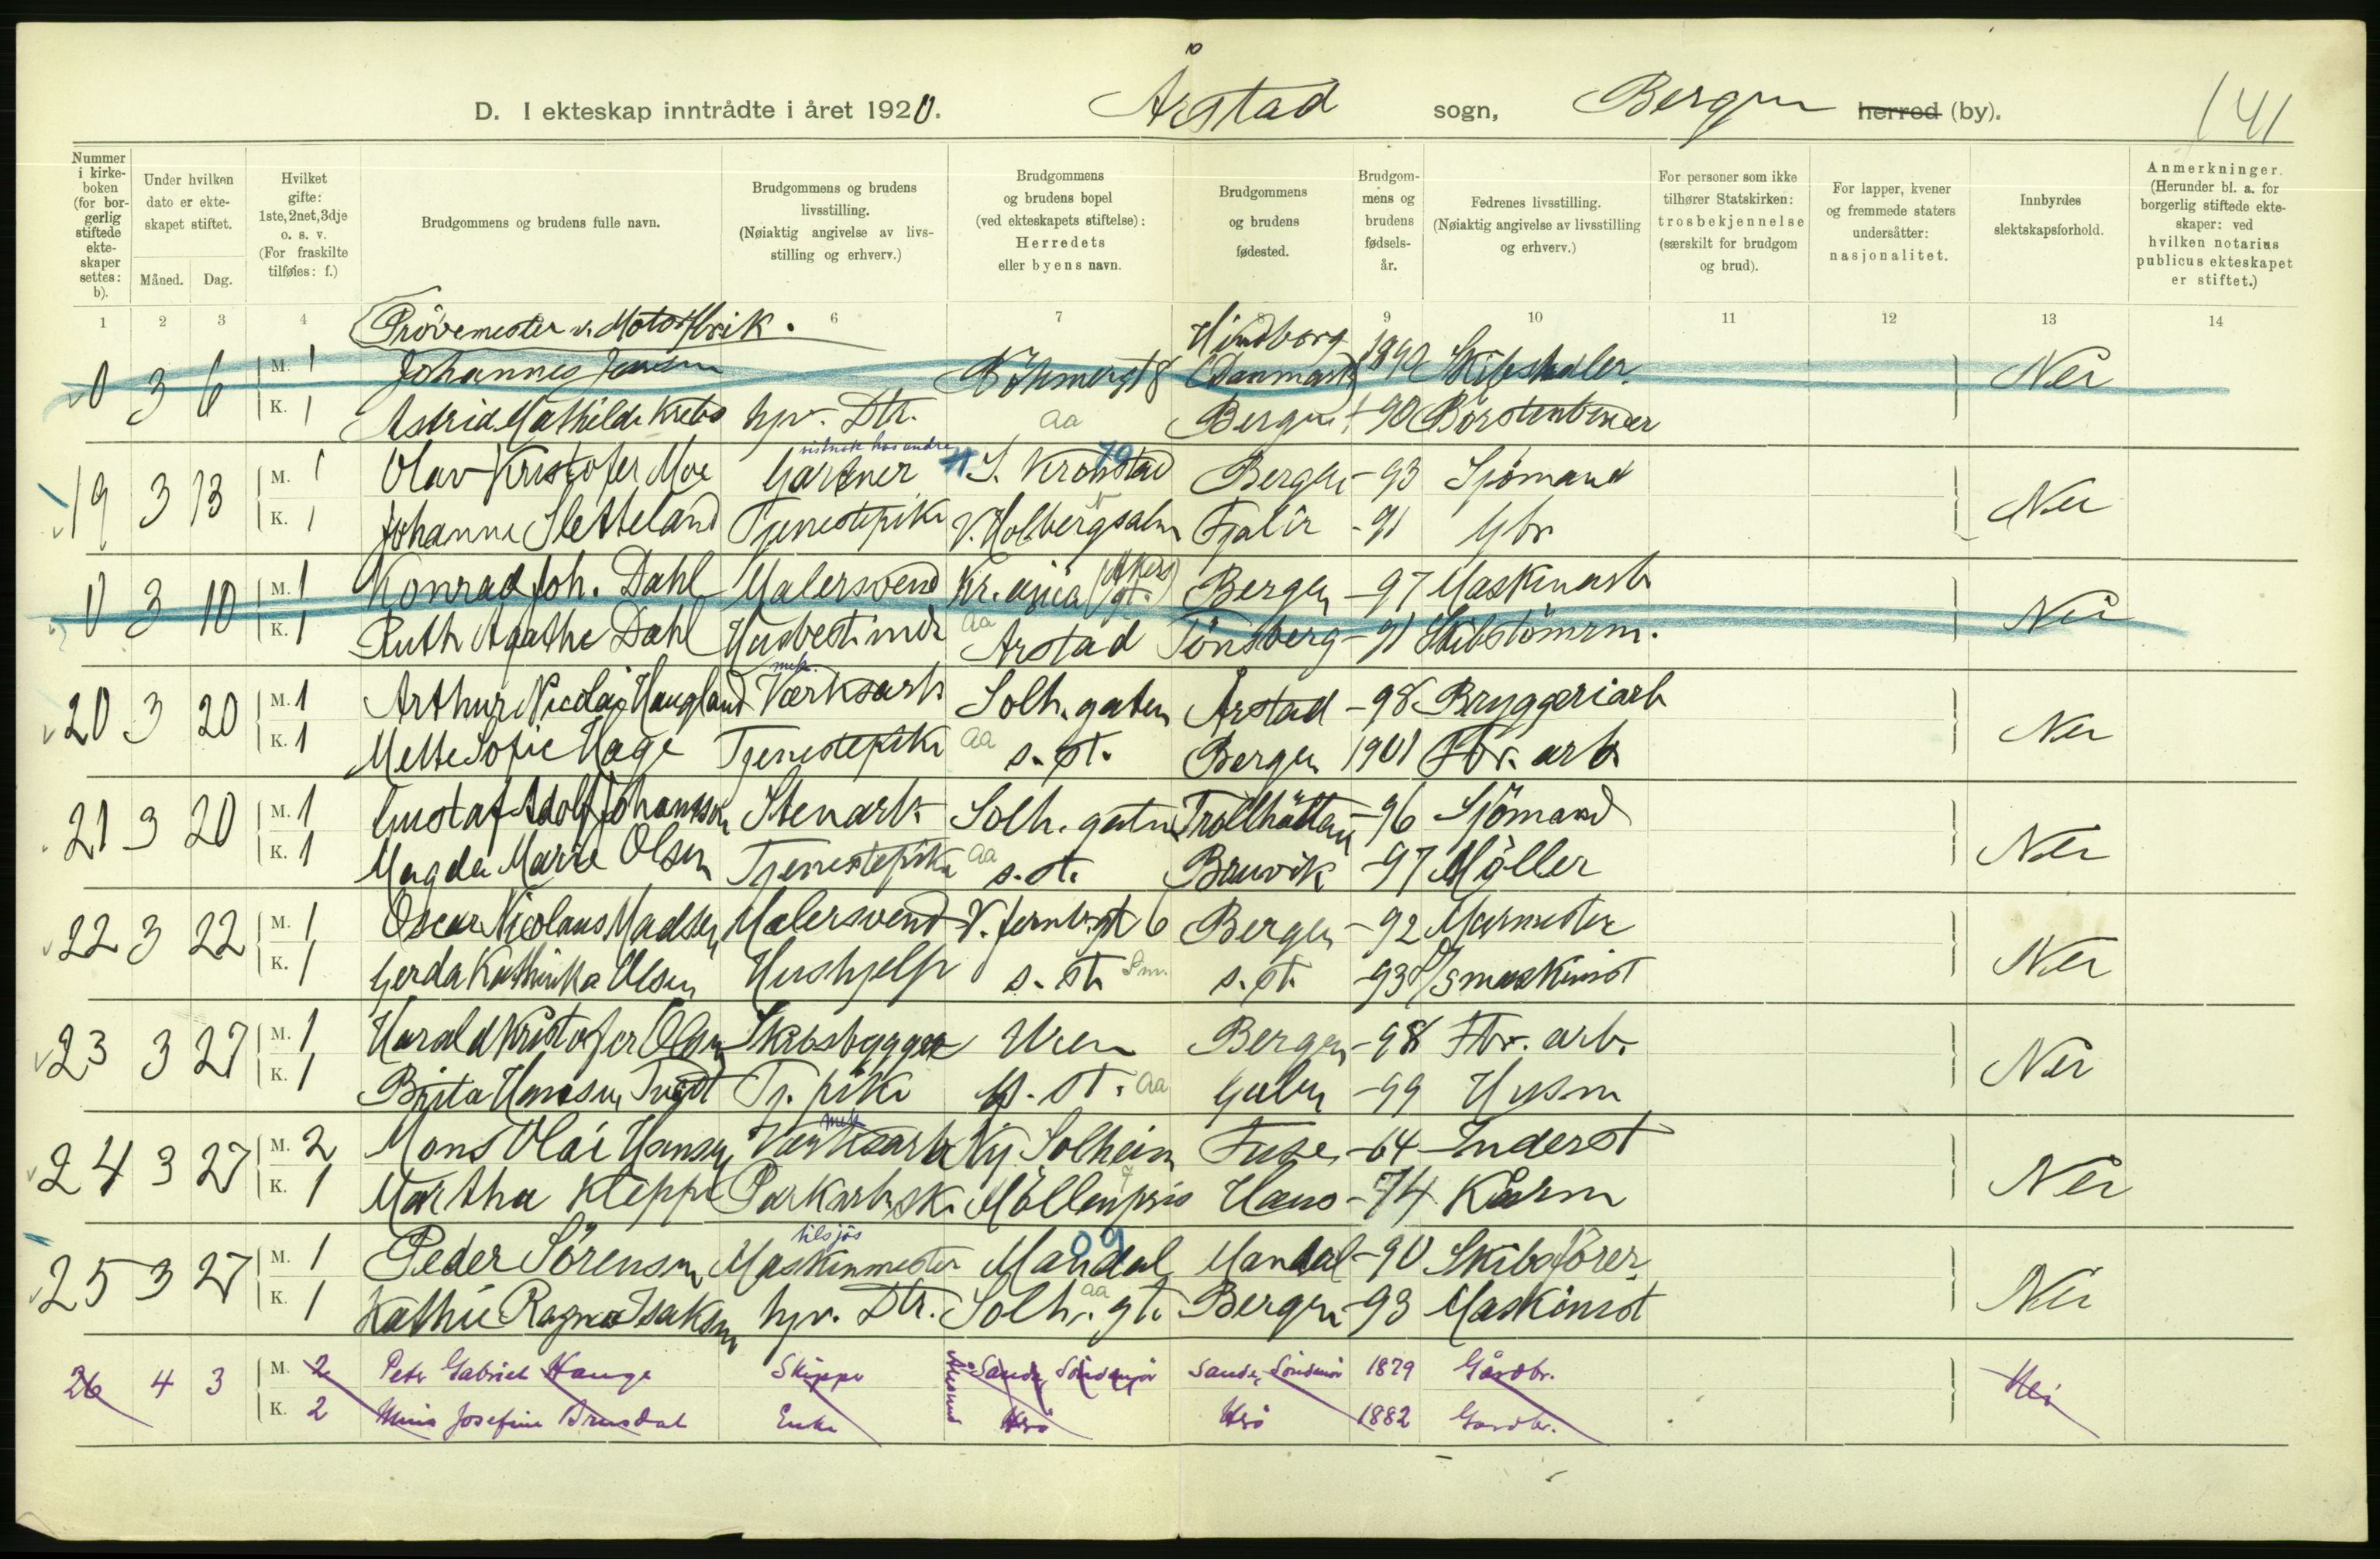 D. I ekteskap inntrådte i året 1920. Årstad sogn, Bergen herred (by). 141
Nummer i kirkeboken (for borgerlig stiftede ekteskaper settes: b).
Under hvilken dato er ekteskapet stiftet.
Måned. Dag.
Hvilket gifte: 1ste, 2net, 3dje o. s. v. (For fraskilte tilføies: f.)
Brudgommens og brudens fulle navn.
Brudgommens og brudens livsstilling. (Nøiaktig angivelse av livsstilling og erhverv.)
Brudgommens og brudens bopel (ved ekteskapets stiftelse): Herredets eller byens navn.
Brudgommens og brudens fødested.
Brudgommens og brudens fødselsår.
Fedrenes livsstilling. (Nøiaktig angivelse av livsstilling og erhverv.)
For personer som ikke tilhører Statskirken: trosbekjennelse (særskilt for brudgom og brud).
For lapper, kvener og fremmede staters undersåtter: nasjonalitet.
Innbyrdes slektskapsforhold.
Anmerkninger. (Herunder bl. a. for borgerlig stiftede ekteskaper: ved hvilken notarius publicus ekteskapet er stiftet.)
1 2 3 4 6 7 8 9 10 11 12 13 14
Prövemester v. Motorfbrik. Hindborg
0 3 6 M. 1 Johannes Jensen Böhmergt 8 (Danmark) 1890 Nei
K. 1 Astrid Mathilde Krebs hjv. Dtr. aa Bergen -90 Börstenbinder
19 3 13 M. 1 Olav Kristofer Moe Gartner S. Kronstad Bergen -93 Sjömand Nei
K. 1 Johanne Sletteland Tjenestepike V. Holbergsalm Fjaler -91 Gbr.
0 3 10 M. 1 Konrad Joh. Dahl Malersvend Kr.ania (Akersgt.) Bergen -97 Maskinarb Nei
K. 1 Ruth Agathe Dahl aa Årstad Tönsberg -91 Skibstömrm.
mek.
20 3 20 M. 1 Arthur Nicolay Haugland Værksarb Solh. gaten Årstad -98 Bryggeriarb Nei
K. 1 Mette Sofie Hage Tjenestepike aa s. st. Bergen 1901 Fbr. arb
21 3 20 M. 1 Gustaf Adolf Johansson Stenarb. Solh. gaten Trollhättan -96 Sjömand Nei
K. 1 Magda Marie Olsen Tjenestepike aa s. st. Bruvik -97 Möller
22 3 22 M. 1 Oscar Nicolaus Madsen Malersvend V. Jernb.gt 6 Bergen -92 Murmester Nei
K. 1 Gerda Kathinka Olsen Hushjelp s. st. s. st. -93 D/S maskinist
23 3 27 M. 1 Harald Kristofer Olsen Skibsbygger Uren Bergen -98 Fbr. arb. Nei
K. 1 Brita Hansen Tvedt Tj. pike s. st. aa Gulen -99 Husm
mek
24 3 27 M. 2 Mons Olai Hansen Værksarb Ny Solheim Fuse -64 Inderst Nei
K. 1 Martha Kleppe Parkarbsk. Möllenpris Haus -74 Kårm
tilsjös 09
25 3 27 M. 1 Peder Sörensen Maskinmester Mandal Mandal -90 Skibsförer Nei
K. 1 Kathie Ragna Isaksen hjv. Dtr. Solh. gt. aa Bergen -93 Maskinist
26 4 3 M. 2 Peter Gabriel Hauge Skipper Sande, Söndmör Sande, Söndmör 1879 Gårdbr. Nei
K. 2 Josefine Brusdal Enke Herö Herö 1882 Gardbr.